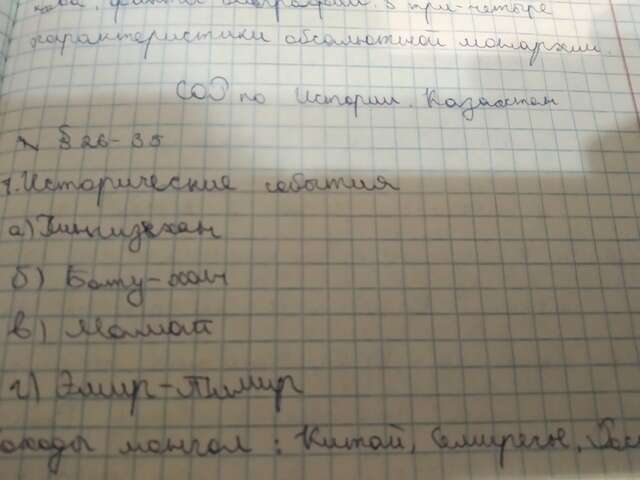 фактов биографии. 3 три-четыре
характеристики абсалютной монархии.
СОЧ по Истории. Казахстан
§ 26-35
1. Исторические события
а) Чингизхан
б) Бату-хан
в) Мамай
г) Эмир-Тимир
Походы монгол: Китай, Семиречье,